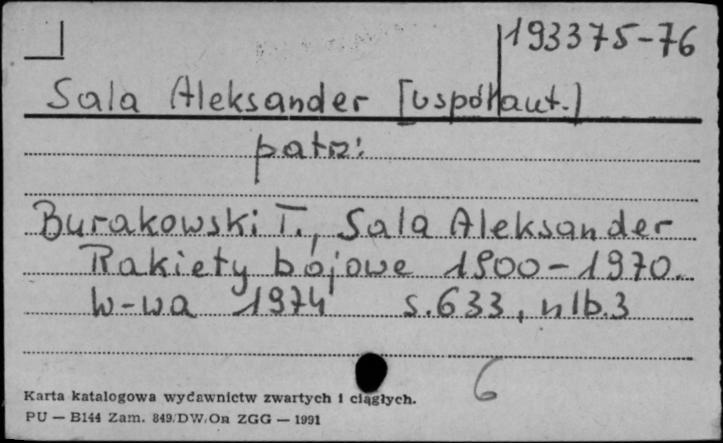 193375-76
Sala Aleksander [współaut.]
patrz:
Burakowski T., Sala Aleksander
Rakiety bojowe 1900-1970.
W-wa 1974 s.633, nlb.3
6
Karta katalogowa wydawnictw zwartych i ciągłych.
PU — B144 Zam. 849/DW/On ZGG — 1991